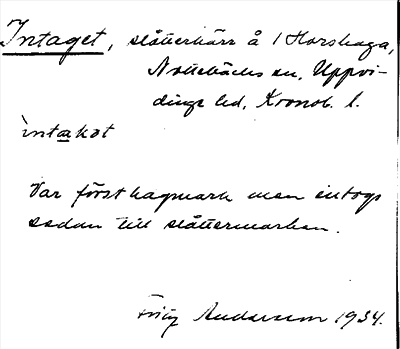 Intaget, slåtterkärr å 1 Horshaga,
Nottebäcks sn, Uppvi-
dinge hd, Kronob. l.
intakot
Var först hagmark men intogs
sedan till slåttermarken.
Andersson 1934.